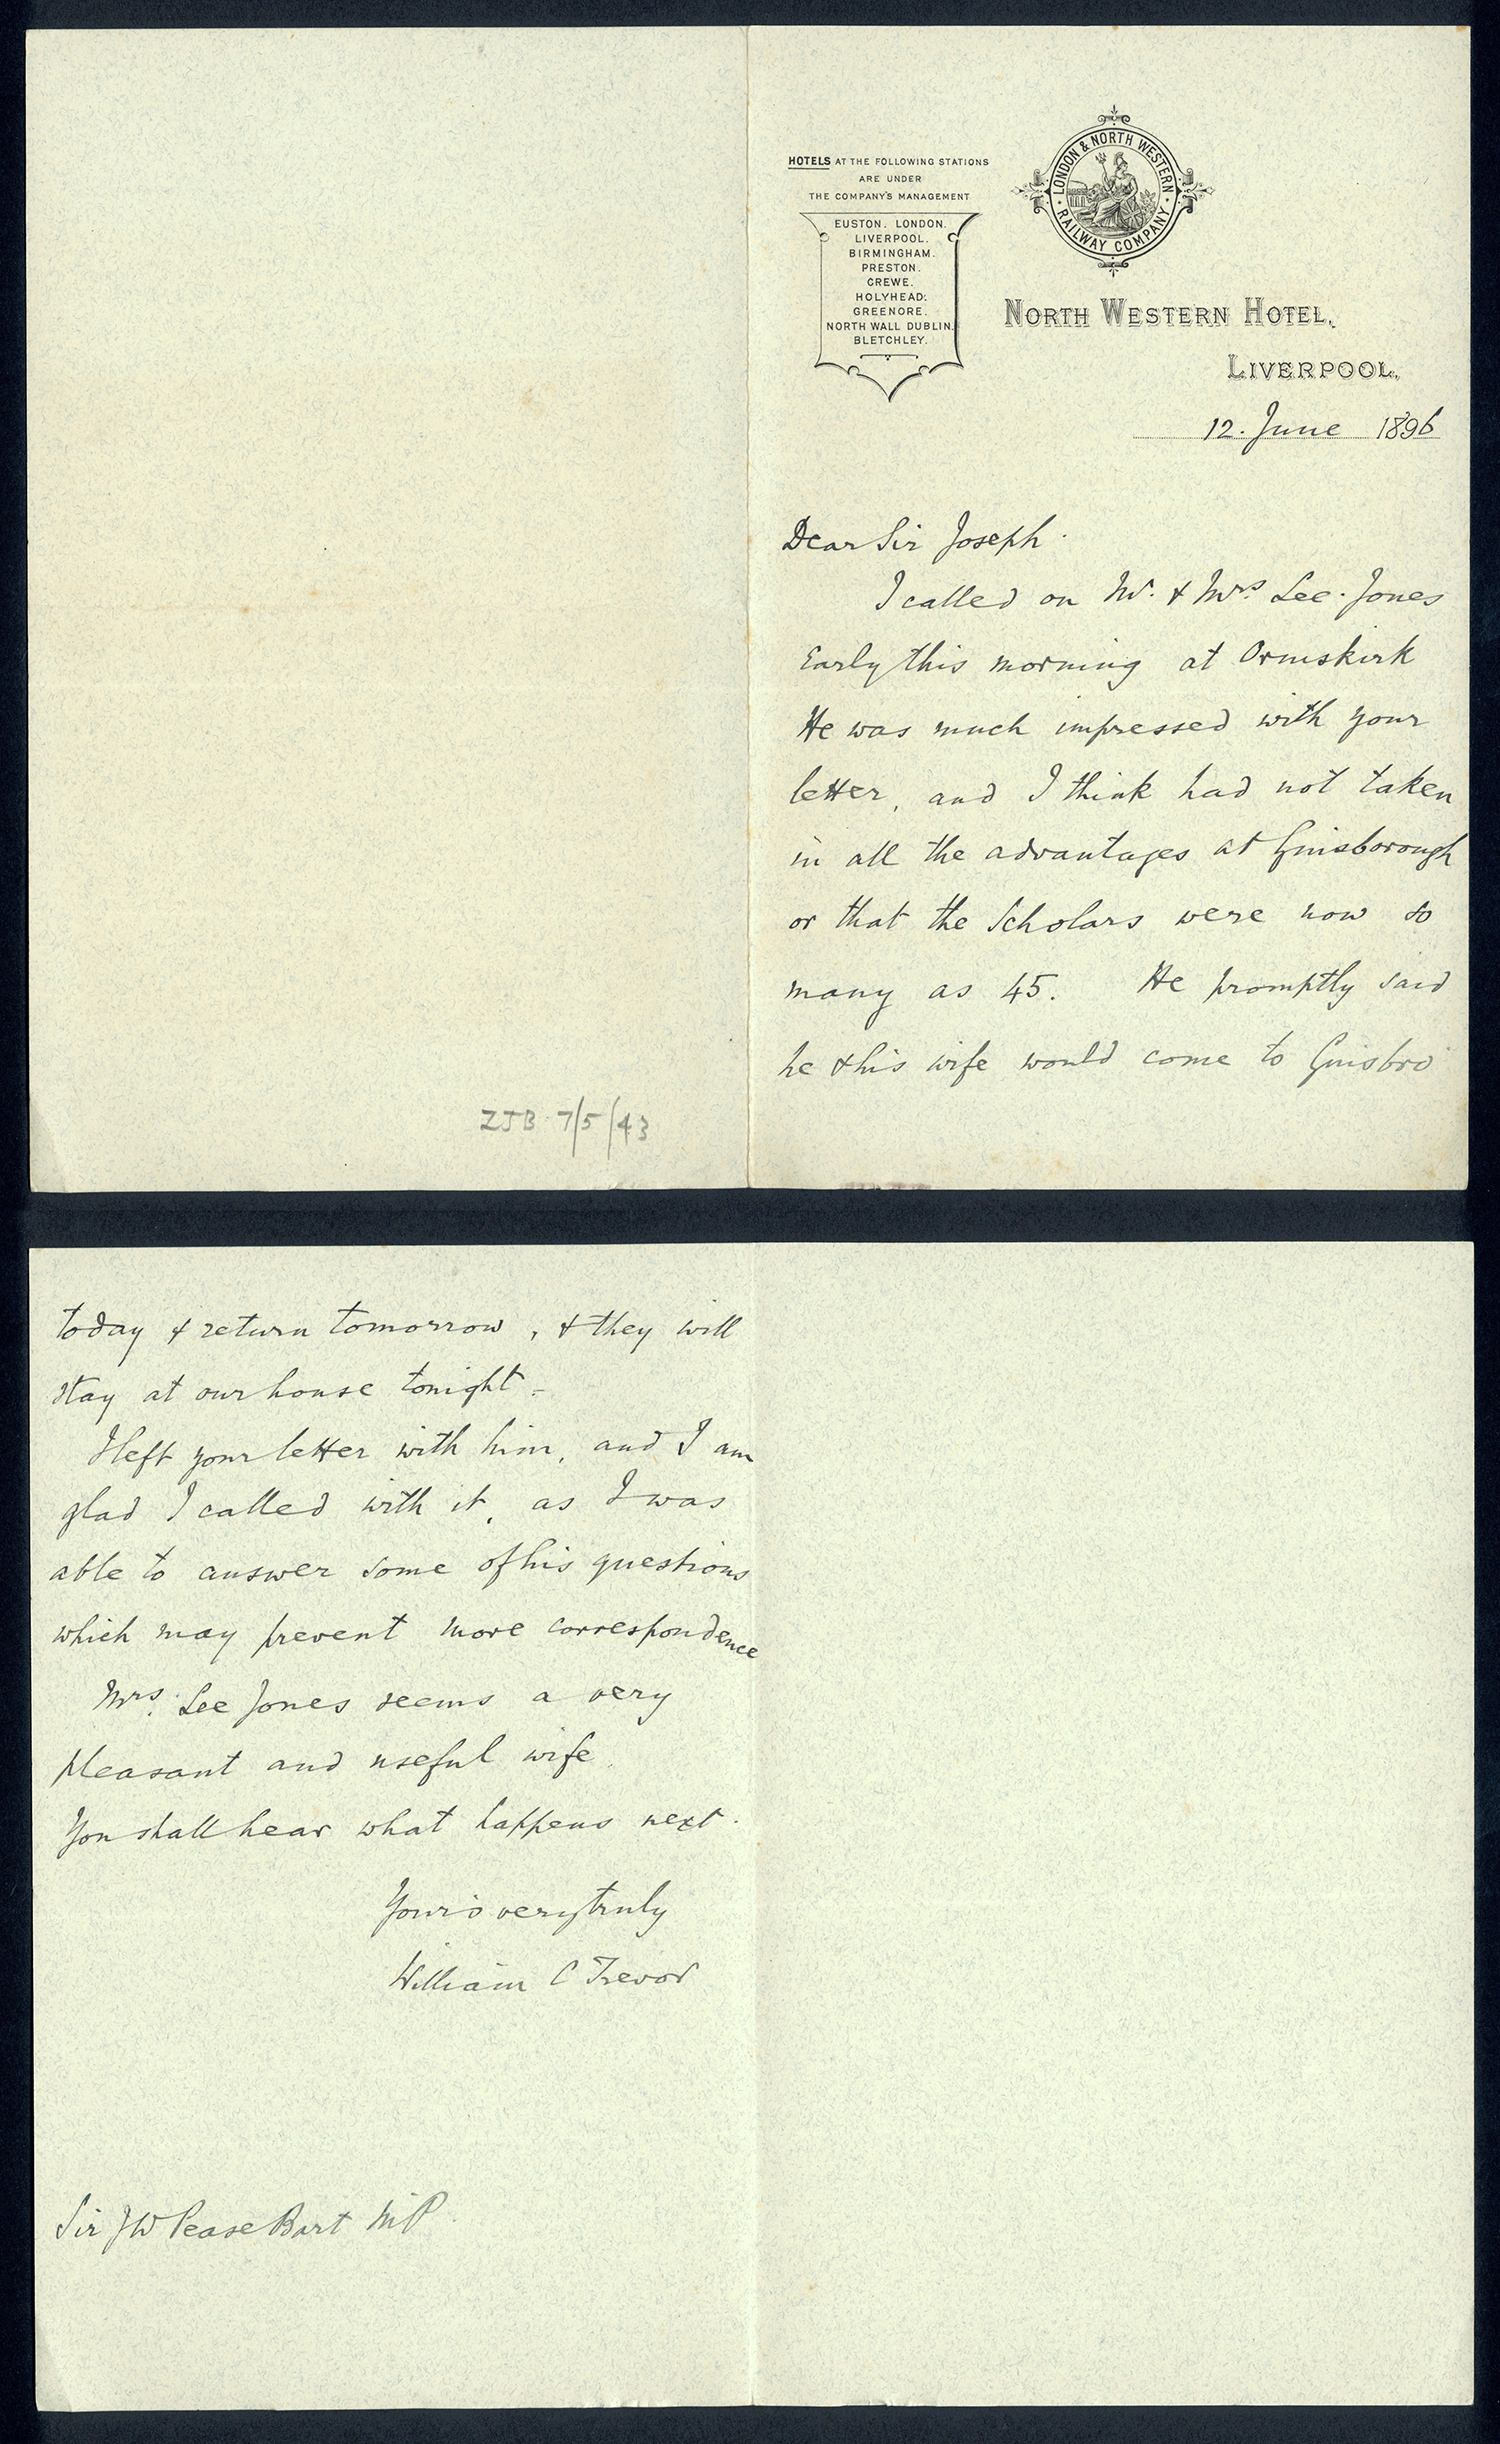 HOTELS AT THE FOLLOWING STATIONS
ARE UNDER
THE COMPANY'S MANAGEMENT
EUSTON. LONDON.
LIVERPOOL.
BIRMINGHAM.
PRESTON.
CREWE.
HOLYHEAD.
GREENORE.
NORTH WALL DUBLIN.
BLETCHLEY.
LONDON & NORTH WESTERN
RAILWAY COMPANY
NORTH WESTERN HOTEL,
LIVERPOOL,
12. June 1896
Dear Sir Joseph.
I called on Mr. & Mrs. Lee-Jones
Early this morning at Ormskirk
He was much impressed with your
letter, and I think had not taken
in all the advantages at Guisborough
or that the Scholars were now so
many as 45. He promptly said
he & his wife would come to Guisbro'
ZJB 7/5/43
today & return tomorrow, & they will
stay at our house tonight -
I left your letter with him, and I am
glad I called with it, as I was
able to answer some of his questions
which may prevent more correspondence
Mrs. Lee Jones seems a very
pleasant and useful wife.
You shall hear what happens next.
Yours very truly
William C Trevor
Sir JW Pease Bart MP.